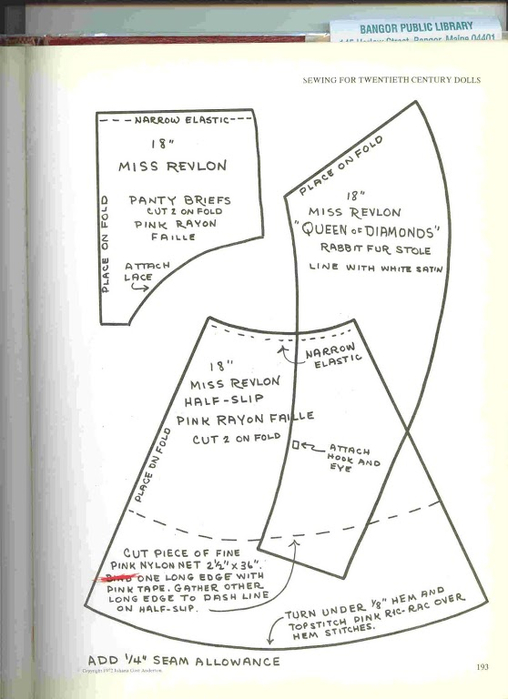 BANGOR PUBLIC LIBRARY
145 Harlow Street, Bangor, Maine 04401
SEWING FOR TWENTIETH CENTURY DOLLS
NARROW ELASTIC
18"
MISS REVLON
PANTY BRIEFS
CUT 2 ON FOLD
PINK RAYON
FAILLE
PLACE ON FOLD
ATTACH
LACE
PLACE ON FOLD
18"
MISS REVLON
"QUEEN OF DIAMONDS"
RABBIT FUR STOLE
LINE WITH WHITE SATIN
NARROW
ELASTIC
18"
MISS REVLON
HALF-SLIP
PINK RAYON FAILLE
CUT 2 ON FOLD
PLACE ON FOLD
ATTACH
HOOK AND
EYE
CUT PIECE OF FINE
PINK NYLON NET 2½" X 36".
BIND ONE LONG EDGE WITH
PINK TAPE. GATHER OTHER
LONG EDGE TO DASH LINE
ON HALF-SLIP.
TURN UNDER ⅛" HEM AND
TOPSTITCH PINK RIC-RAC OVER
HEM STITCHES.
ADD ¼" SEAM ALLOWANCE
Copyright 1972 Johana Gast Anderton
193